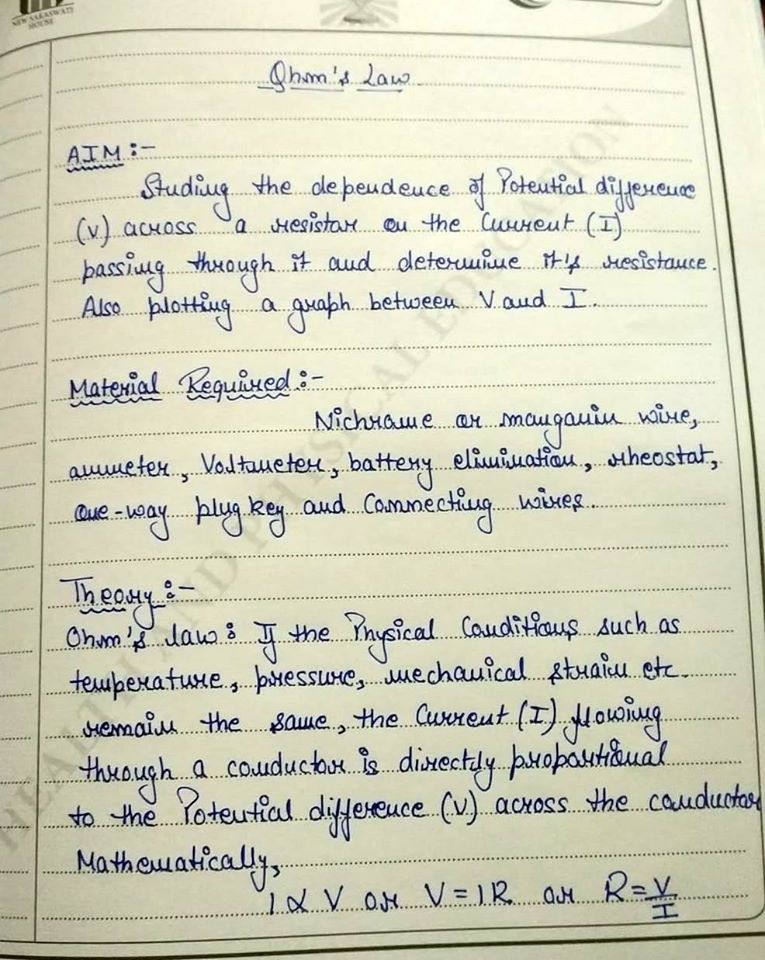 NEW SARASWATI
HOUSE
Ohm's Law
AIM:-
Studing the dependence of Potential difference
(V) across a resistor on the Current (I)
passing through it and determine it's resistance.
Also plotting a graph between V and I.
Material Required:-
Nichrome or manganin wire,
ammeter, Voltmeter, battery elimination, rheostat,
One-way plug key and Connecting wires.
Theory:-
Ohm's law: If the Physical Conditions such as
temperature, pressure, mechanical strain etc.
remain the same, the Current (I) flowing
through a conductor is directly proportional
to the Potential difference (V) across the conductor
Mathematically,
I ∝ V or V = IR or R = V/I
HEALTH AND PHYSICAL EDUCATION